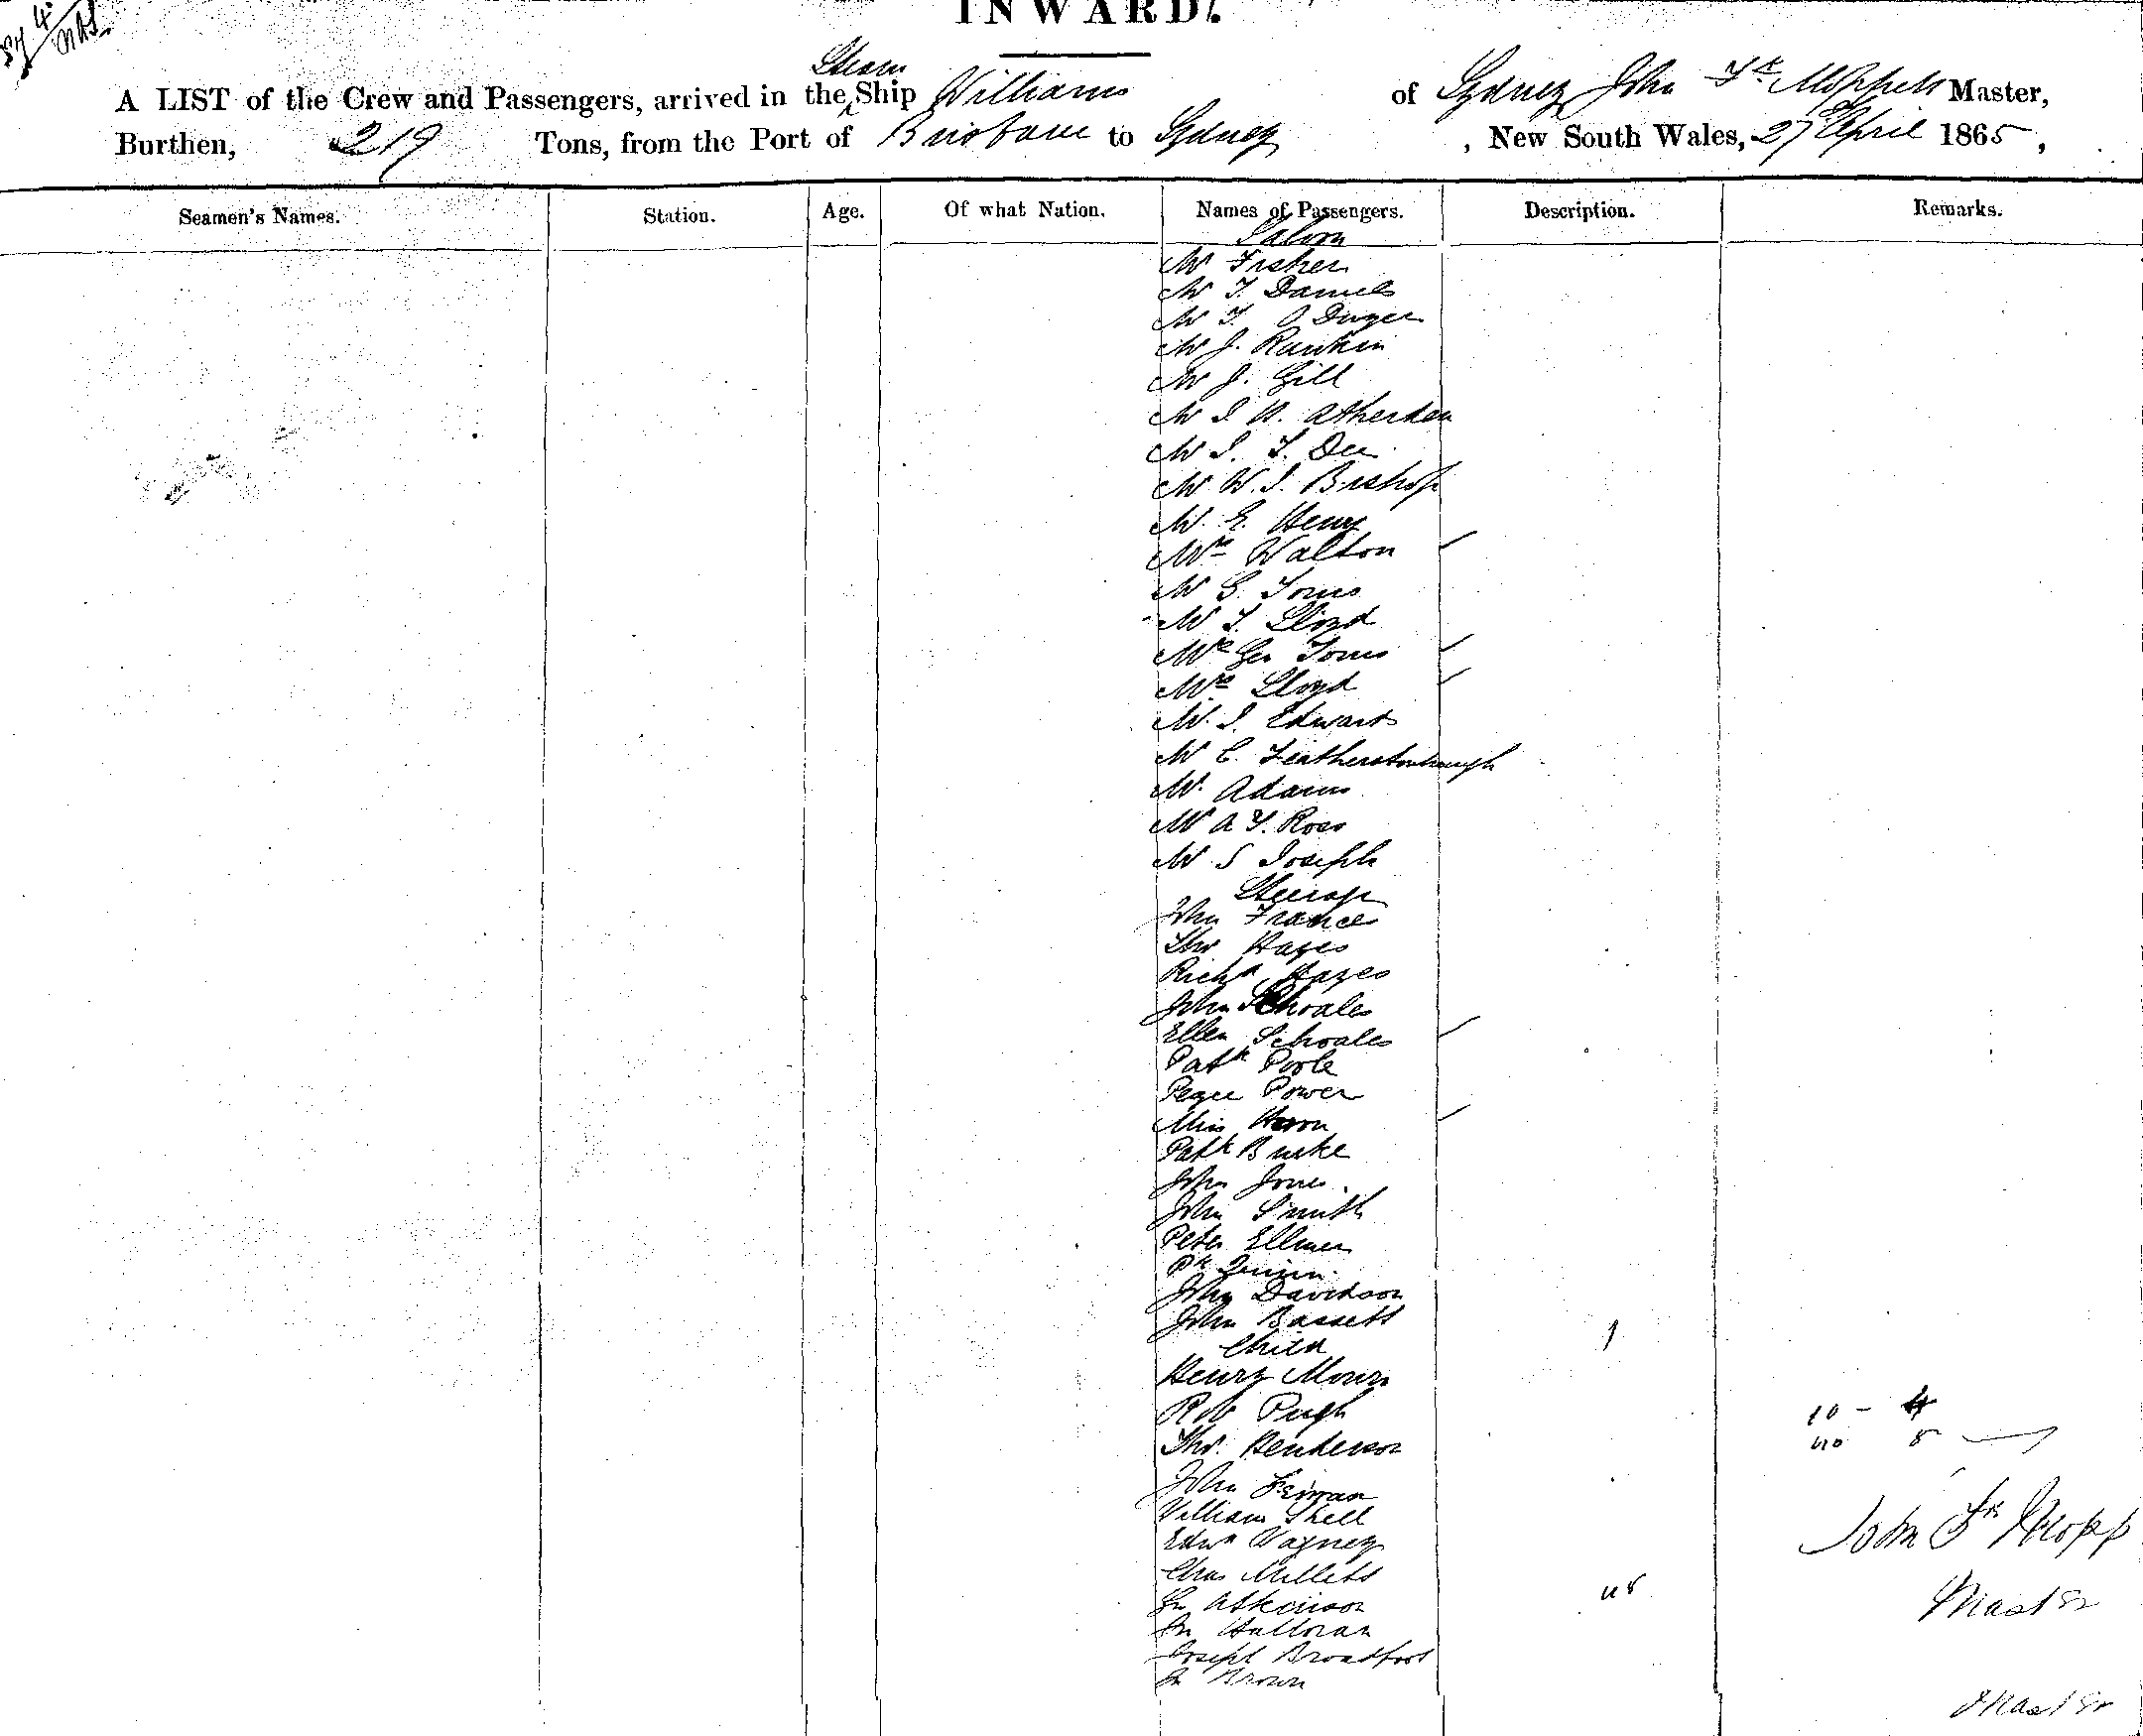 INWARD.
Steam
A LIST of the Crew and Passengers, arrived in the Ship Williams of Sydney John Master,
Burthen, 219 Tons, from the Port of Brisbane to Sydney , New South Wales, 27 April 1865,
Seamen's Names. Station. Age. Of what Nation. Names of Passengers. Description. Remarks.
Saloon
Mr Fisher
Mr T. Daniels
Mr T. O Dwyer
Mr J. Rankin
Mr J. Gill
Mr J W. Atherden
Mr J. T. Dee
Mr W. J. Bishop
Mr E. Henry
Mrs Walton
Mr G. Toms
Mr T. Lloyd
Mrs Geo Toms
Mrs Lloyd
Mr J. Edwards
Mr C. Featherstonhaugh
Mr Adams
Mr A T. Ross
Mr S Joseph
Steerage
John France
Thos Hayes
Richd Hayes
John Schoales
Ellen Schoales
Patk Poole
Power
Miss
Patk Burke
John Jones
John Smith
Peter Ellmer
Pk Quinn
John Davidson
John Bassett
Child 1
Henry
Rob Pugh
Thos. Henderson
10 - 4
John
William Shell
John Fk Mopp
Edwd Vagney
Chas Millett
Master
Jn Atkinson
48
Jn Halloran
Joseph Broadfoot
Jn Brown
Master